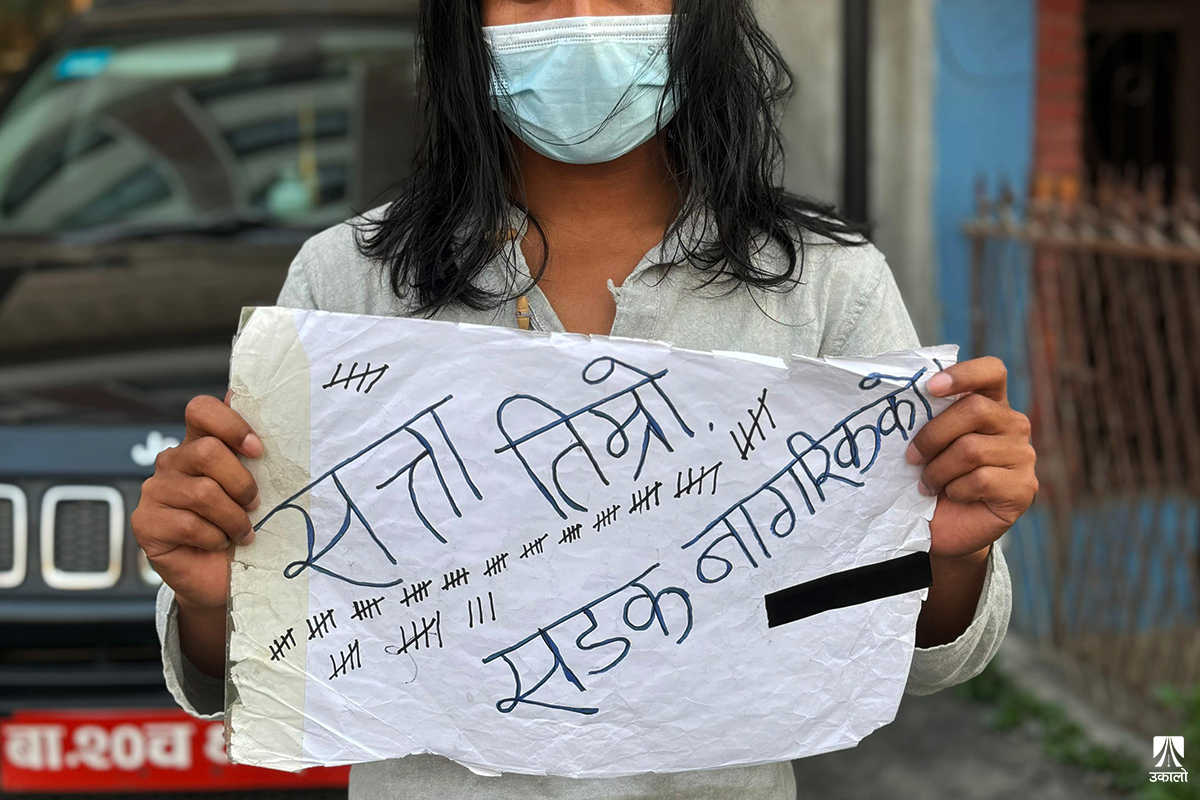 सत्ता तिम्रो.
सडक नागरिकको!
Je
बा.२०च
उकालो